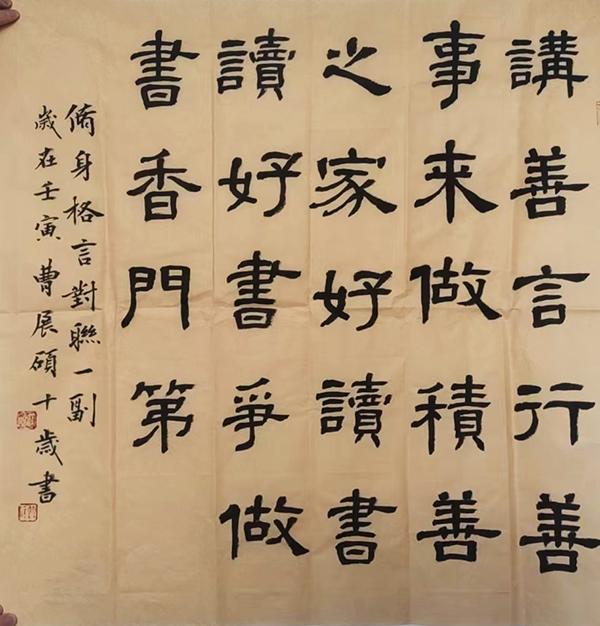 講善言行善
事来做積善
之家好讀書
讀好書爭做
書香門第
脩身格言對聯一副
歲在壬寅曹展碩十歲書